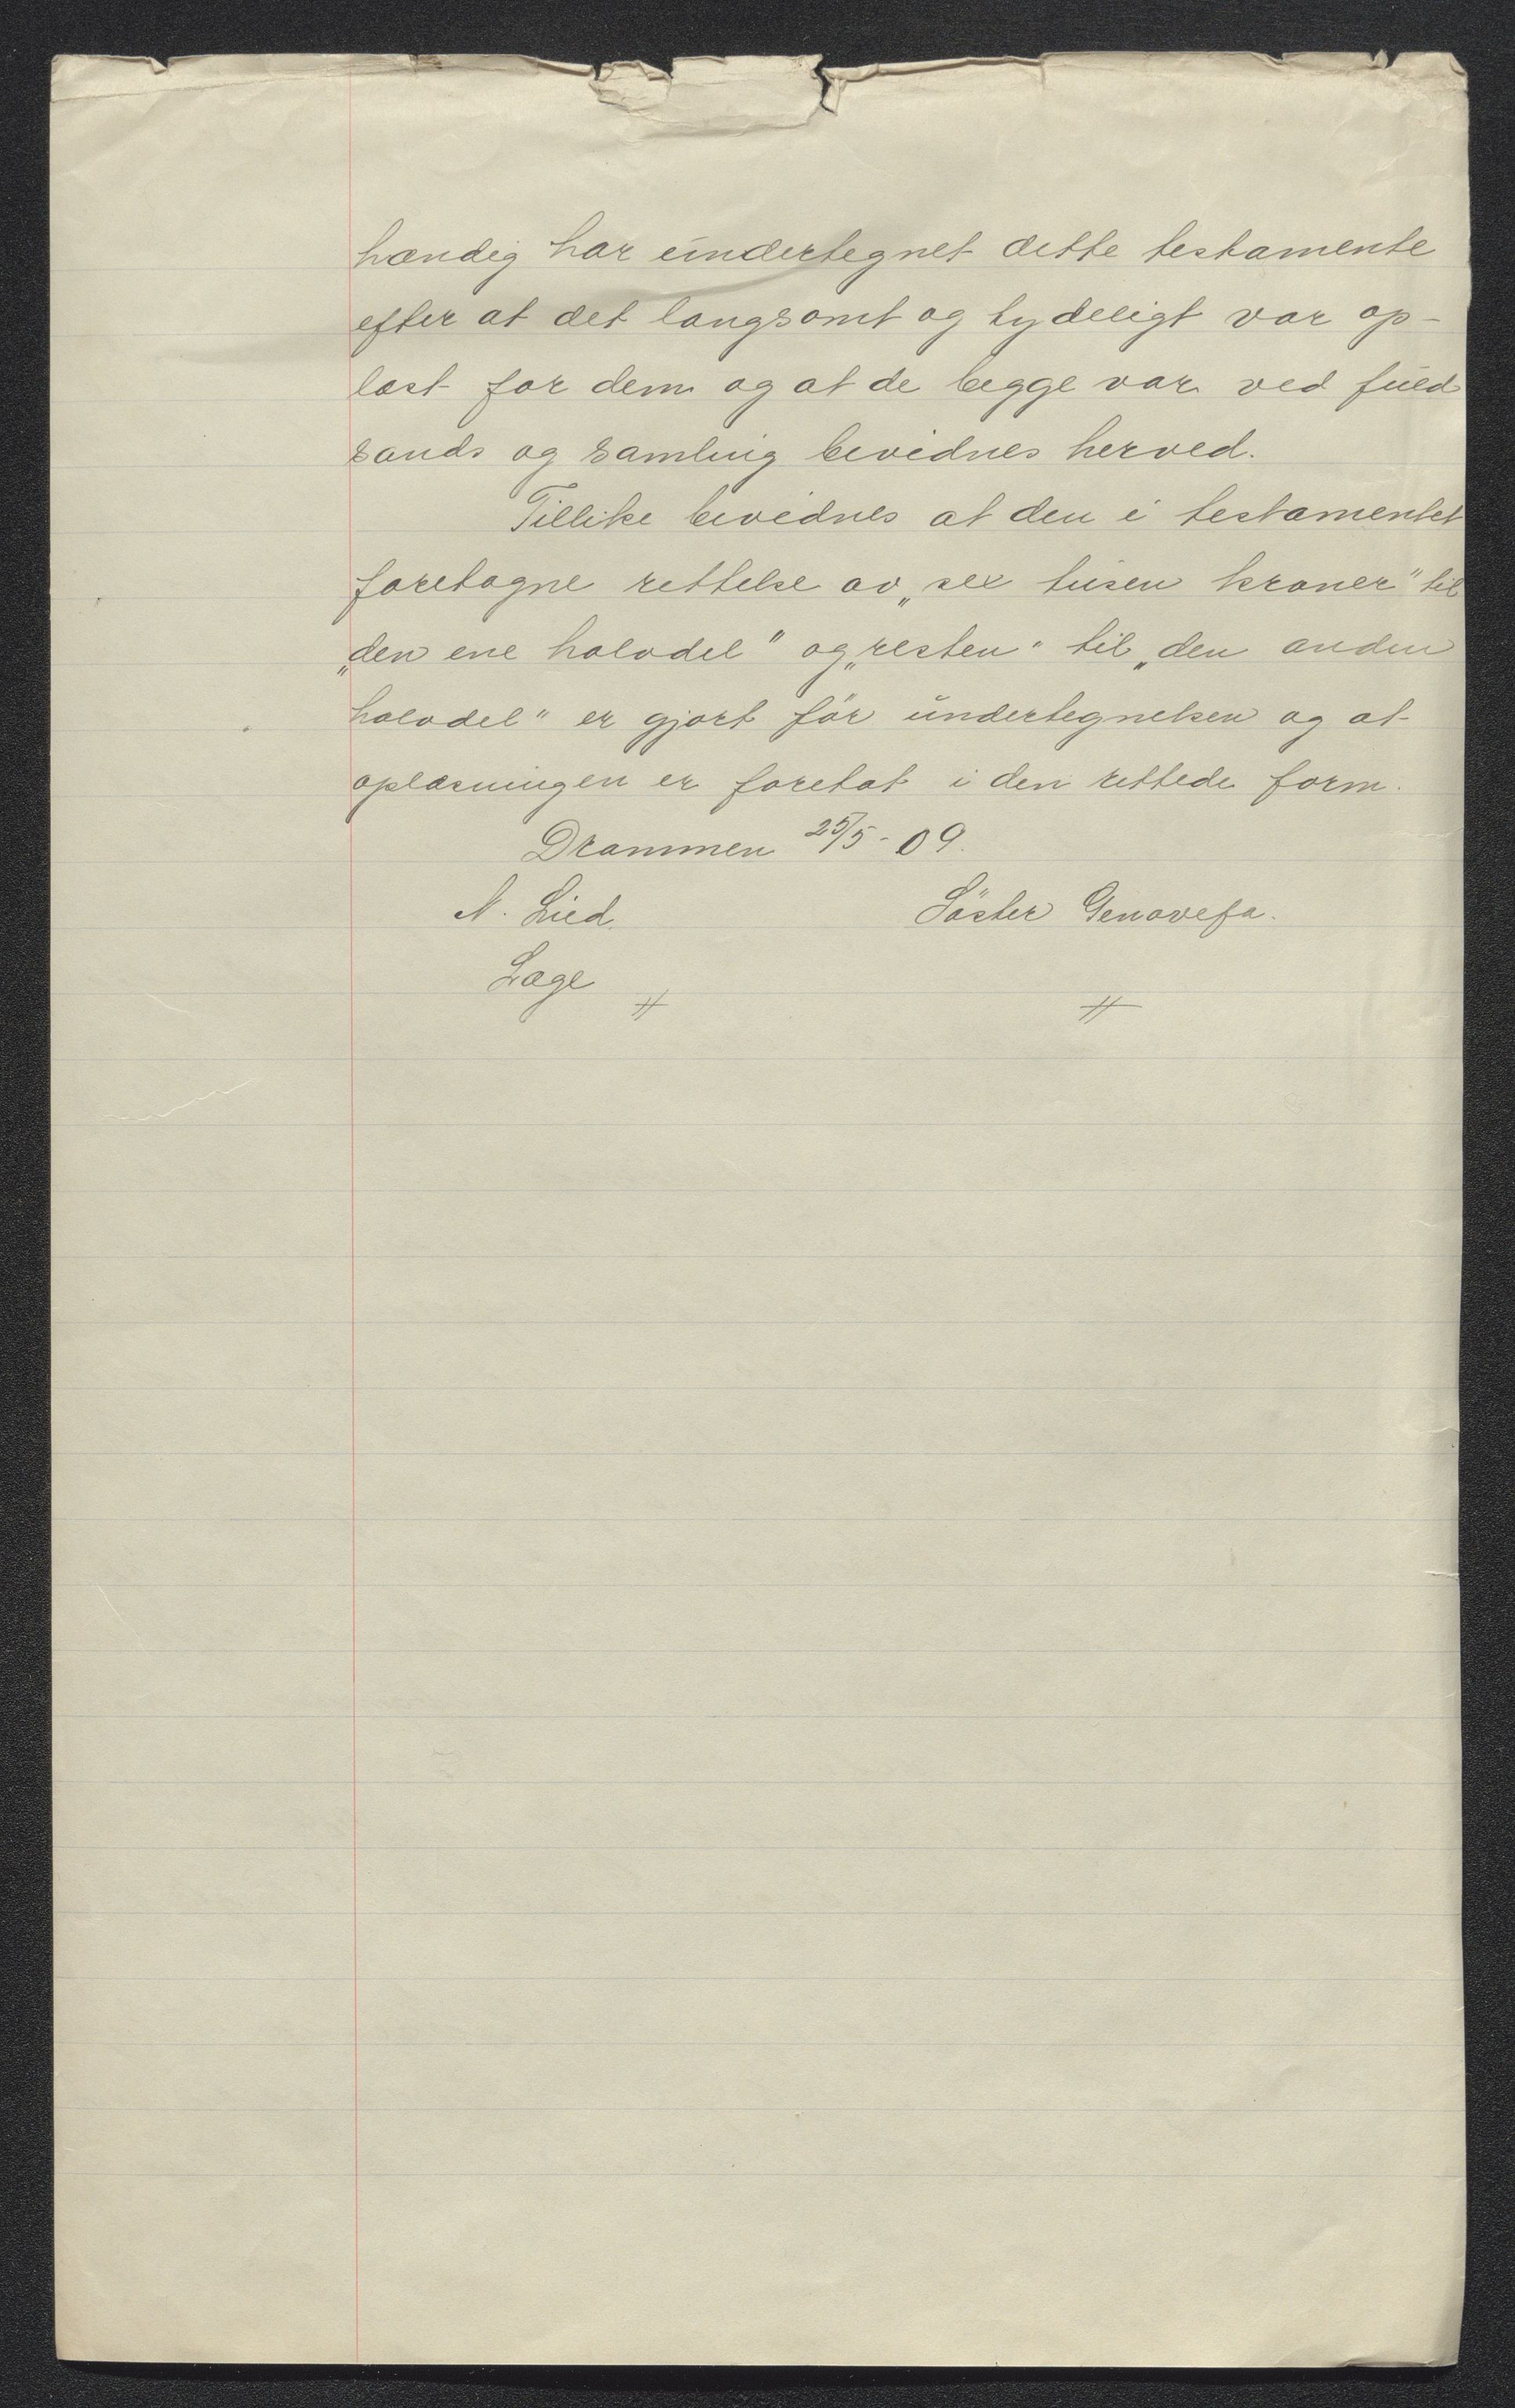 hændig har undertegnet dette testamente
efter at det langsomt og tydeligt var op-
læst for dem og at de begge var ved fuld
sands og samling bevidnes herved.
Tillike bevidnes at den i testamentet
foretagne rettelse av „sex tusen kroner" til
„den ene halvdel" og „resten" til „den anden
halvdel" er gjort för undertegnelsen og at
oplæsningen er foretat i den rettede form.
Drammen 25/5-09.
N. Lied. Söster Genovefa.
Læge